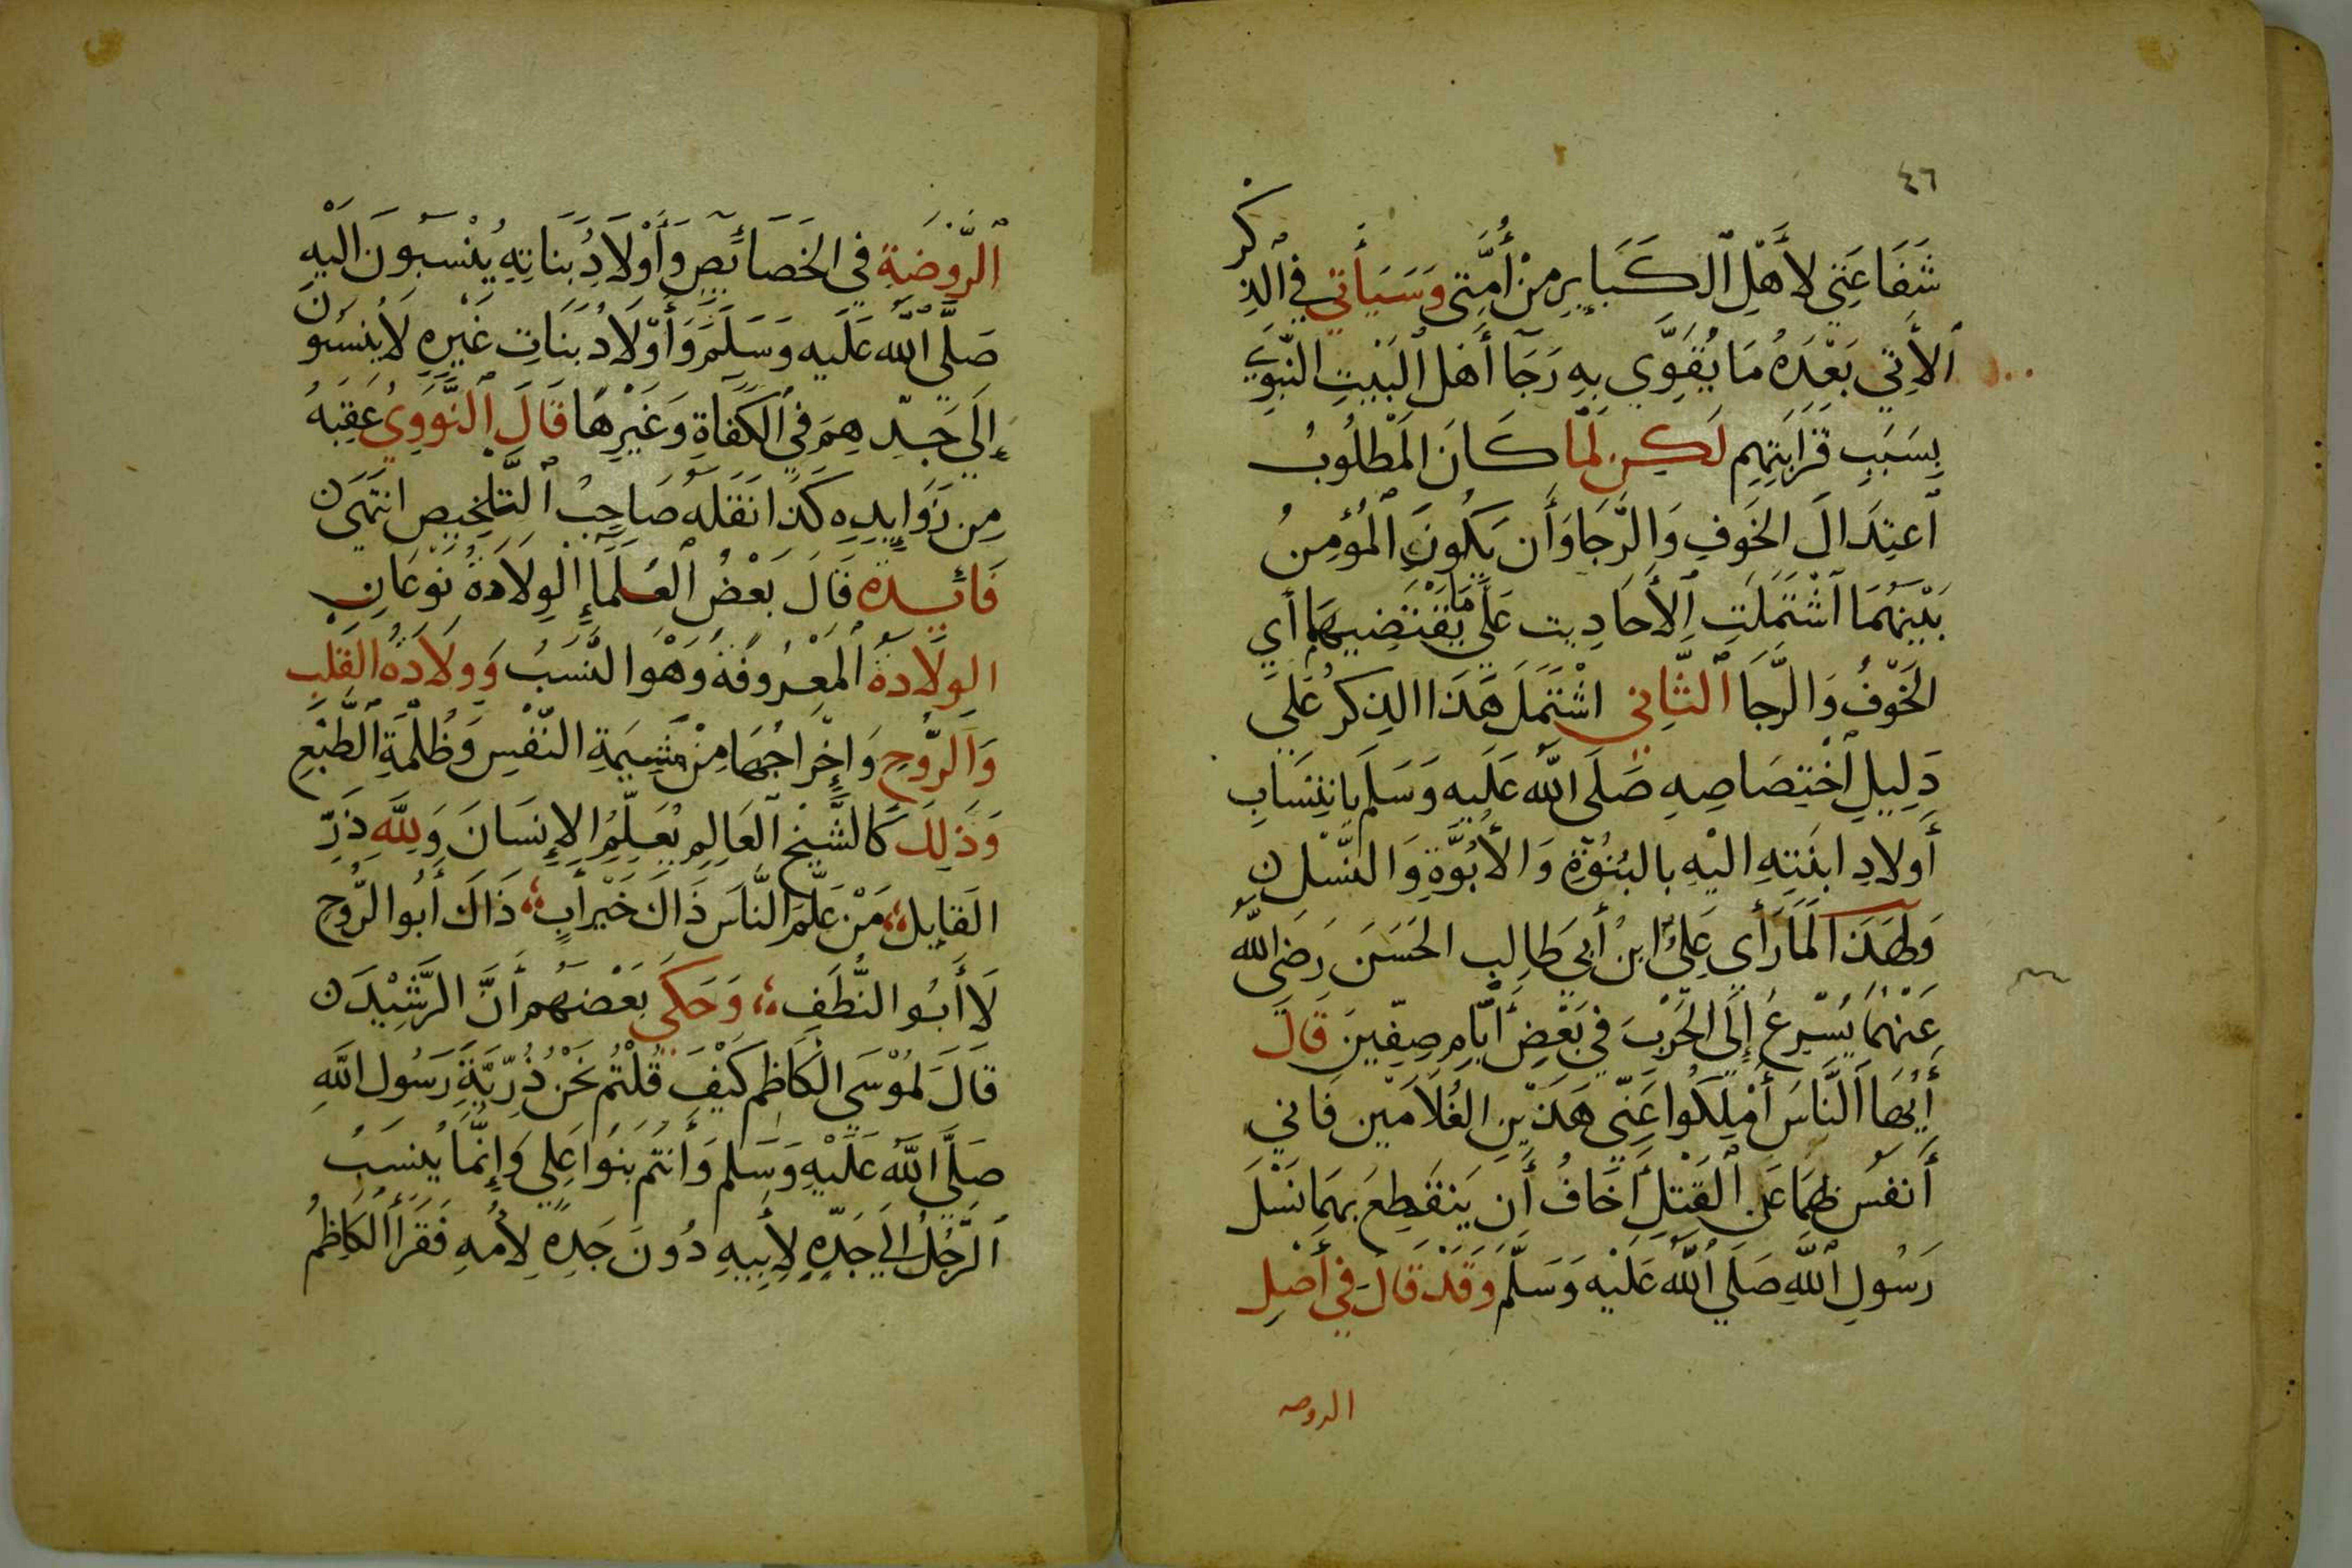 ٤٦
شَفَاعَتِي لأَهْلِ ٱلكَبَايِرِ مِنْ أُمَّتِي وَسَيَأتي فِي الذِكر
ٱلأٓتِي بَعْدَهُ مَا يُقَوِّي بِهِ رَجَآ أَهْلِ ٱلبَيْتِ النَّبَوِي
بِسَبَبِ قَرَابَتِهِم لَكِن لَمَّا كَانَ الْمَطْلُوبُ
ٱعتِدَالَ الخَوفِ وَالرَّجَا وَأَن يَكُونَ ٱلْمُؤمِنُ
بَيْنَهُمَا ٱشْتَمَلَتِ ٱلأَحَادِيث عَلَى مَا يَقْتَضِيهِمَا أي
الخَوْفُ وَالرَّجَا ٱلثَّانِي اشْتَمَلَ هَذَا الذِكرُ عَلَى
دَلِيلِ ٱخْتِصَاصِهِ صَلَى اللَّه عَلَيه وَسَلَم بانتِسَابِ
أَولادِ ابنَتِهِ اليْهِ بالبُنُوَّةِ وَالأُبُوَّةِ وَالنَّسْلِ ن
وَلِهَذَا لَمَّا رَأَي عَلِيُّ ابنُ أَبِي طَالِبِ الحَسَنَ رَضي اللَّه
عَنْهُمَا يُسْرِعُ إِلَى الحَرْبَ فِي بَعْضِ أَيَّامِ صِفِّينَ قَالَ
أَيُّهَا اَلنَّاسَ أَمْلِكُوا عَنِّي هَذَيْنِ الغُلاَمَيْنِ فَاني
أَنفسُ بهمَا عَلى ٱلقَتْلِ أَخَافُ أَن يَنقَطِعَ بهِمَا نَسْلَ
رَسُولِ ٱللَّهِ صَلَى ٱللَّه عَلَيْه وَسَلَّم وَقَدْ قَالَ فِي أَصْلِ
الروضه
ٱلرَّوْضَةِ فِي الخَصَائَصِ وَأَوْلاَدُ بَنَاتِهِ يُنْسَبُونَ اليْهِ
صَلَّى اللَّه عَلَيه وَسَلَّمَ وَأَوْلاَدُ بَنَاتِ غَيْرِهِ لاَ يُنسَبُون
إِلَى جَدِّهِمَ فِي ٱلكَفَآةِ وَغَيْرِهَا قَالَ ٱلنَّوَوِيُ عَقِبَهُ
مِن زَوَايِدِهِ كَذَا نَقَلَهُ صَاحِبُ ٱلتَّلخِيصِ انتَهَى ن
فَائِدة قَالَ بَعْضُ ٱلعُلَمَاءِ الوِلاَدةُ نَوْعَانِ
الوِلاَدةُ ٱلمَعْرُوفَةُ وَهْوَ النَّسَبُ وَوِلاَدَةُ القَلْبِ
وَالرُّوحِ وَإِخْرَاجُهَا مِنْ مَشِيمَةِ النَّفْسِ وَظُلْمَةِ الطَّبْعِ
وَذَلِكَ كَالشَّيْخِ العَالِمِ يُعَلِّمُ الإِنسَانَ وَلِلَّهِ دَرّ
القَايِل مَنْ عَلَّمَ النَّاسَ ذَاكَ خَيْرُ أَبٍ ذَاكَ أَبُوا الرُّوحِ
لاَ أَبُوا النُّطَفِ وَحَكَي بَعْضهُم أَنَّ الرَّشِيْدَ ن
قَالَ لمُوْسَى الكَاظِم كَيْفَ قُلتُم نَحْنُ ذُرِّيَّةِ رَسُول اللَّهِ
صَلَّى اللَّهُ عَلَيْهِ وَسَلم وَأَنتُم بَنُوا عَلِي وَإِنَّمَا يُنسَبُ
ٱلرَّجُلُ إلَى جَدِّهِ لِأَبِيهِ دُونَ جَدِهِ لِأُمهِ فَقَرَأَ الكَاظِمُ